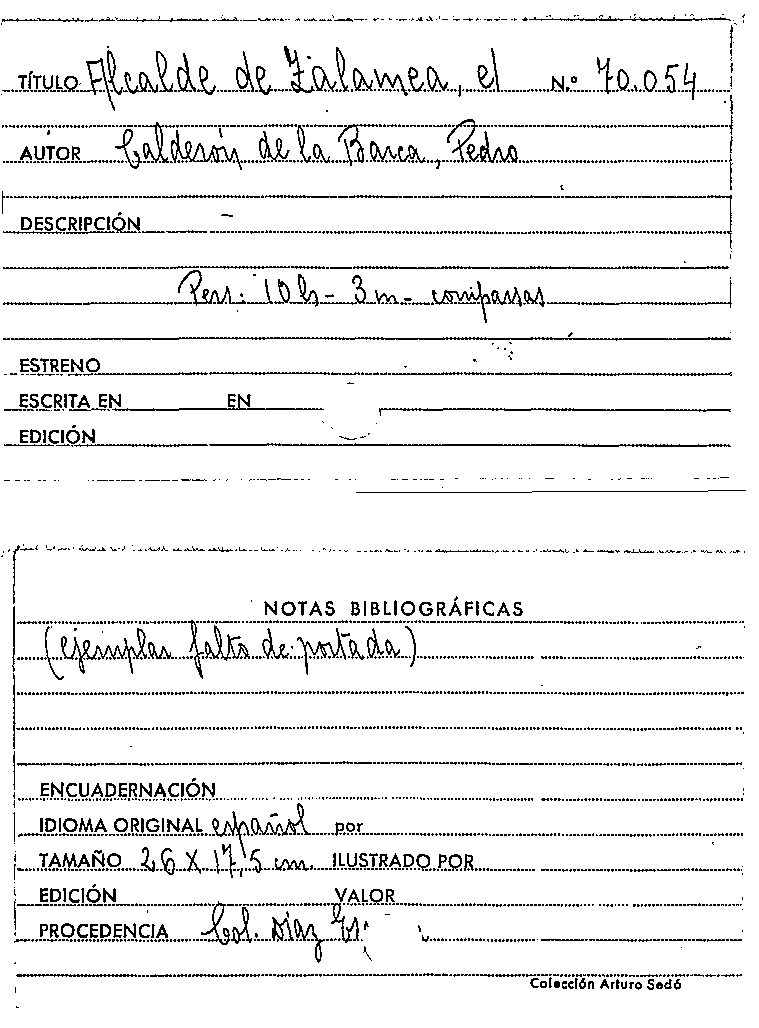 TÍTULO Alcalde de Zalamea, el N.º 70.054
AUTOR Calderón de la Barca, Pedro
DESCRIPCIÓN –
Pers: 10 h - 3 m - comparsas
ESTRENO
ESCRITA EN EN
EDICIÓN
NOTAS BIBLIOGRÁFICAS
(ejemplar falto de portada)
ENCUADERNACIÓN
IDIOMA ORIGINAL español por
TAMAÑO 26 X 17,5 cm. ILUSTRADO POR
EDICIÓN VALOR
PROCEDENCIA Col. Díaz
Colección Arturo Sedó